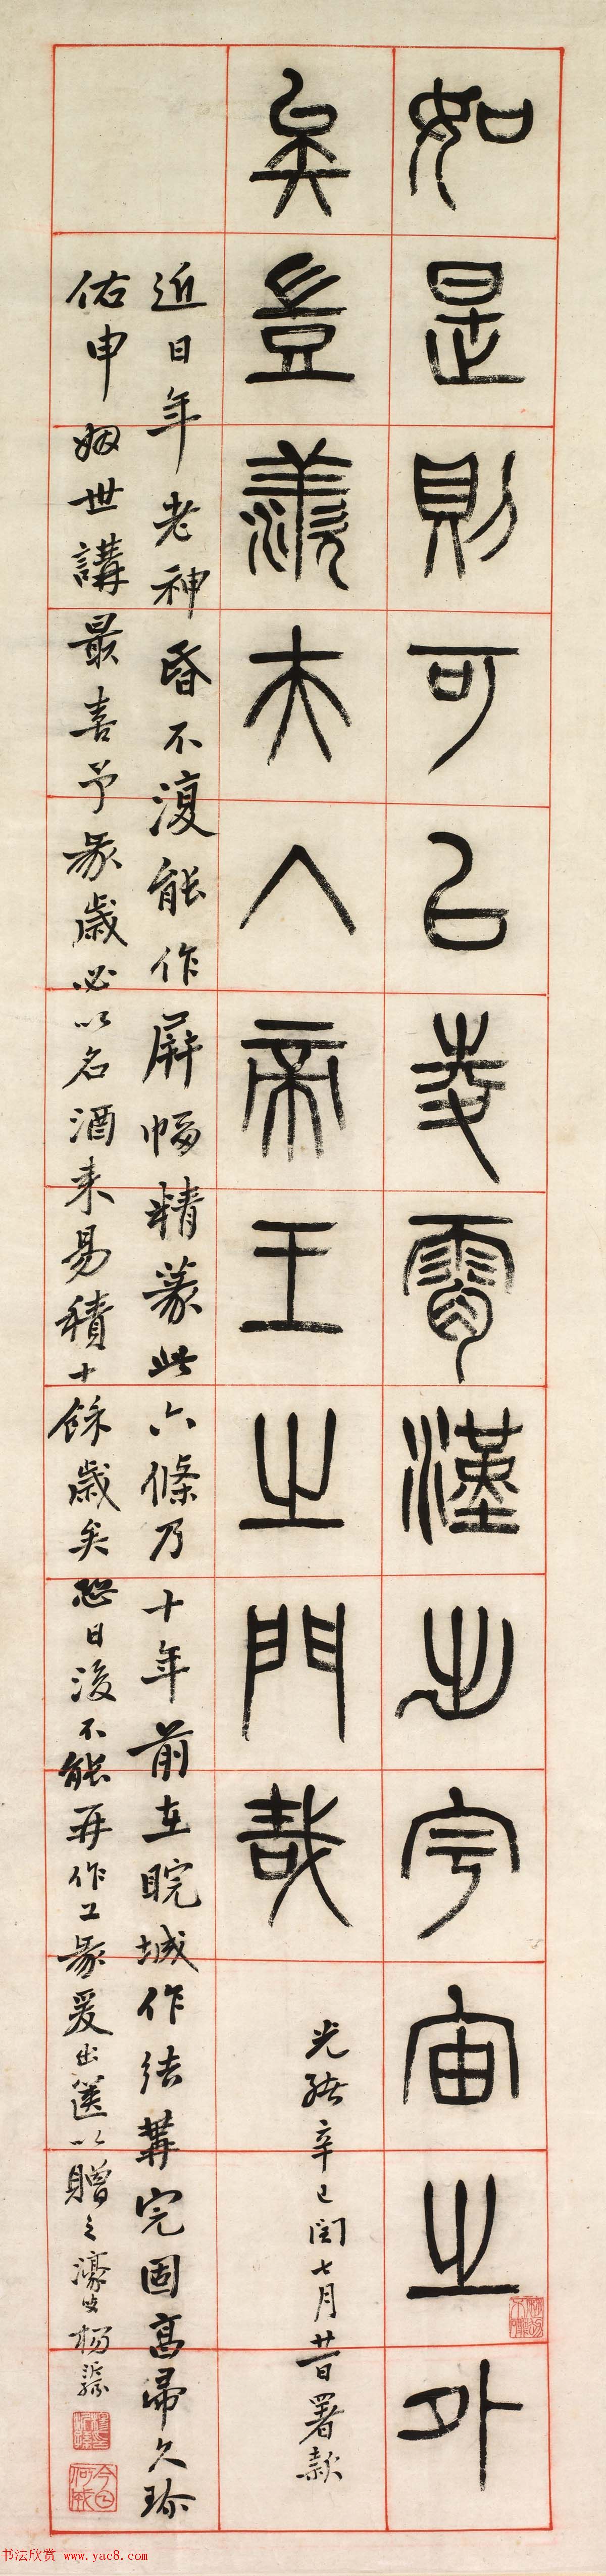 如是則可㠯夌霄漢出宇宙之外
矣豈羨夫入帝王之門哉
光緒辛巳閏七月廿日署款
近日年老神昏不復能作屏幅精篆此六條乃十年前在睆城作結構完固享帚久珍
佑申姻世講最喜予篆歲必以名酒來易積十餘歲矣恐日後不能再作工篆爰出篋以贈之濠叟楊沂孫
书法欣赏 www.yac8.com